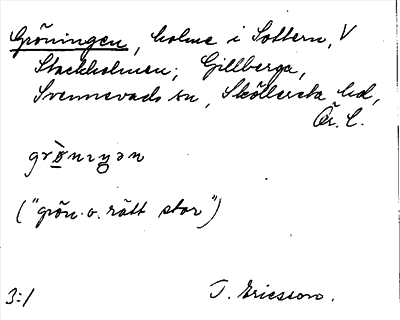 Gröningen, holme i Sottern, V
Stackholmen; Gillberga,
Svennevads sn, Sköllersta hd,
Ör. l.
("grön o. rätt stor")
3:1
T. Ericsson.